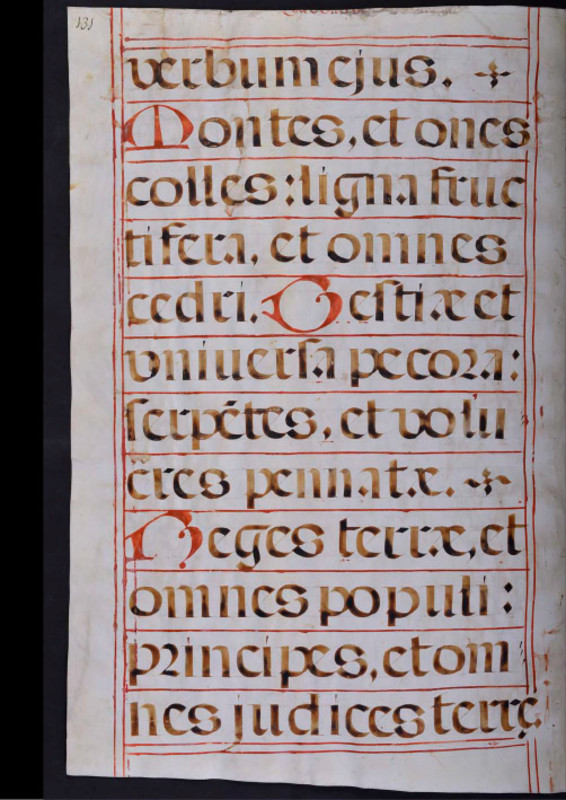 131
verbum ejus. ✢
Montes, et onēs
colles: ligna fruc
tifera, et omnes
cedri. Bestiæ et
vniuersa pecora:
serpētes, et volu
cres pennatæ. ✢
Reges terræ, et
omnes populi:
principes, et om
nes judices terrę.